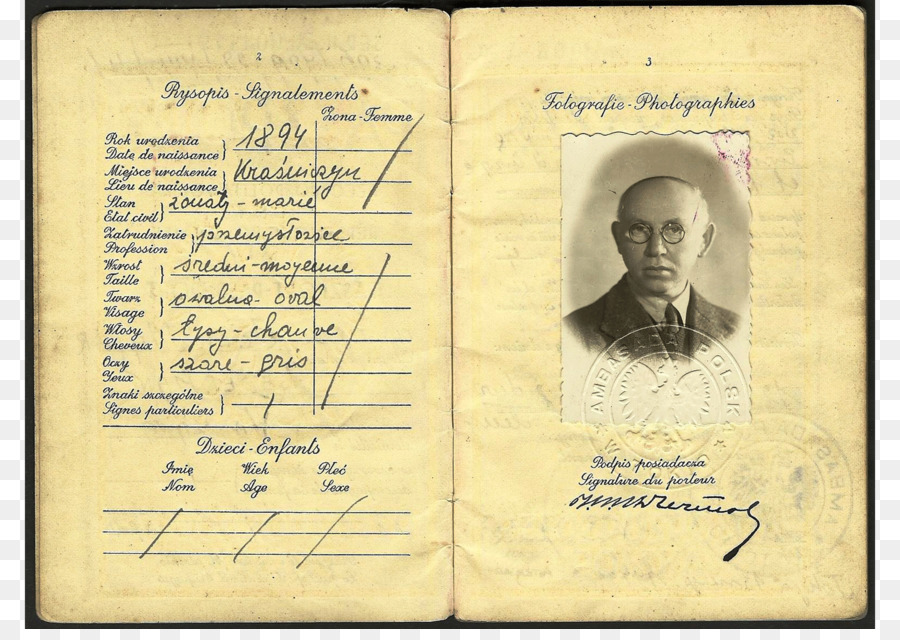 2
Rysopis - Signalements
Żona-Femme
Rok urodzenia
Date de naissance } 1894
Miejsce urodzenia
Lieu de naissance } Kraśniczyn
Stan
Etat civil } żonaty - marié
Zatrudnienie
Profession } przemysłowiec
Wzrost
Taille } średni - moyenne
Twarz
Visage } owalna - oval
Włosy
Cheveux } Łysy - chauve
Oczy
Yeux } szare - gris
Znaki szczególne
Signes particuliers }
Dzieci - Enfants
Imię Wiek Płeć
Nom Age Sexe
3
Fotografie - Photographies
AMBASADA POLSKA
Podpis posiadacza
Signature du porteur